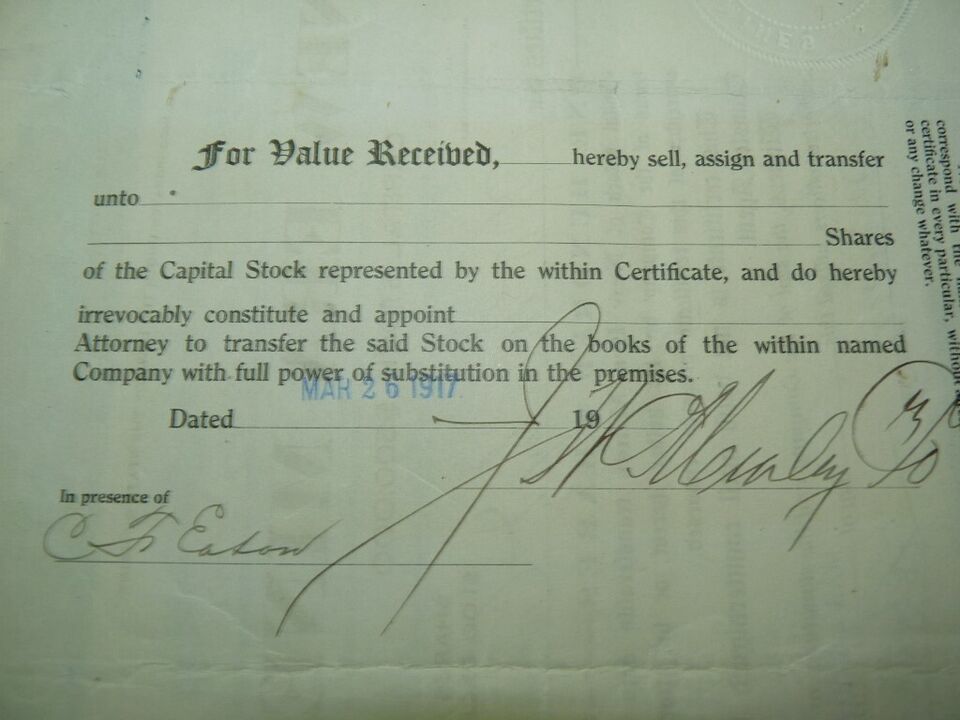 For Value Received, hereby sell, assign and transfer
unto
Shares
of the Capital Stock represented by the within Certificate, and do hereby
irrevocably constitute and appoint
Attorney to transfer the said Stock on the books of the within named
Company with full power of substitution in the premises.
MAR 26 1917
Dated 19
In presence of
C F Eaton
correspond with the
certificate in every particular, without
or any change whatever.